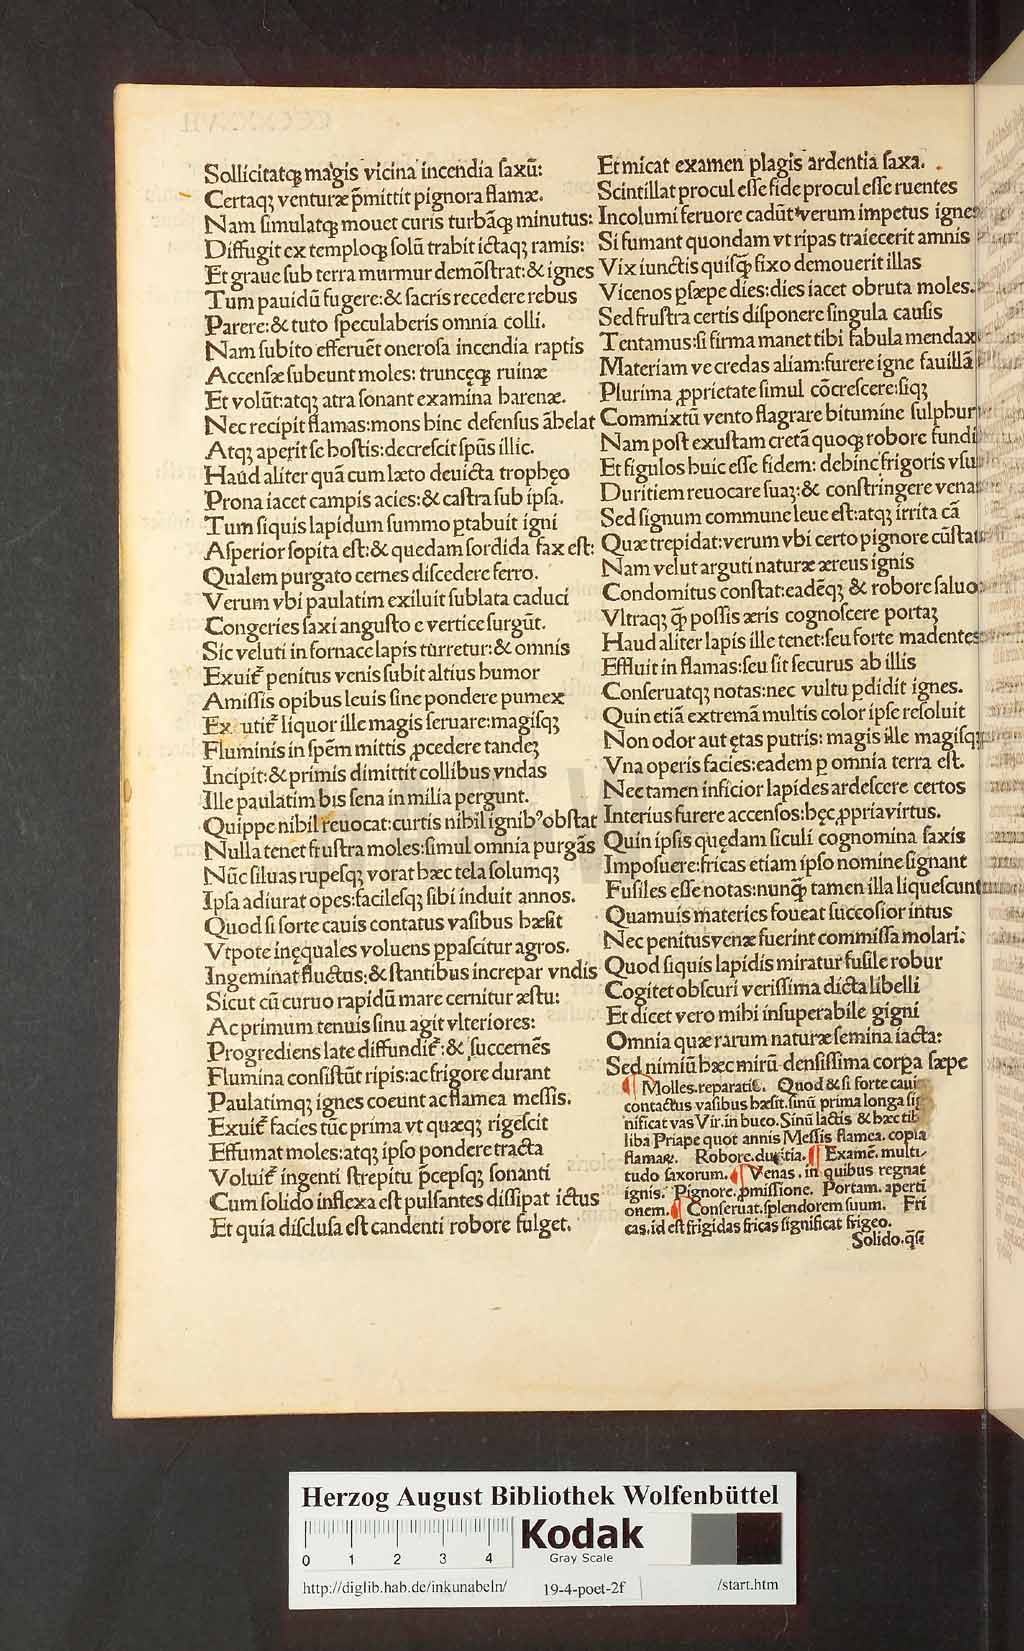 Sollicitatqꝫ magis vicina incendia saxũ:
Certaqꝫ venturæ p̃mittit pignora flamæ.
Nam simulatqꝫ mouet curis turbãqꝫ minutus:
Diffugit extemploqꝫ solũ trahit ictaqꝫ ramis:
Et graue sub terra murmur demõstrat:& ignes
Tum pauidũ fugere:& sacris recedere rebus
Parere:& tuto speculaberis omnia colli.
Nam subito efferuẽt onerosa incendia raptis
Accensæ subeunt moles: truncęqꝫ ruinæ
Et volũt:atqꝫ atra sonant examina harenæ.
Nec recipit flamas:mons hinc defensus ãhelat
Atqꝫ aperit se hostis:decrescit spũs illic.
Haud aliter quã cum læto deuicta trophęo
Prona iacet campis acies:& castra sub ipsa.
Tum siquis lapidum summo ptabuit igni
Asperior sopita est:& quedam sordida fax est:
Qualem purgato cernes discedere ferro.
Verum vbi paulatim exiluit sublata caduci
Congeries saxi angusto e vertice surgũt.
Sic veluti in fornace lapis turretur:& omnis
Exuit᷑ penitus venis subit altius humor
Amissis opibus leuis sine pondere pumex
Ex utit᷑ liquor ille magis feruare:magisqꝫ
Fluminis in spẽm mittis ꝓcedere tandeꝫ
Incipit:& primis dimittit collibus vndas
Ille paulatim bis sena in milia pergunt.
Quippe nihil reuocat:curtis nihil ignibꝰ obstat
Nulla tenet frustra moles:simul omnia purgãs
Nũc siluas rupesqꝫ vorat hæc tela solumqꝫ
Ipsa adiurat opes:facilesqꝫ sibi induit annos.
Quod si forte cauis contatus vasibus hæsit
Vtpote inęquales voluens ppascitur agros.
Ingeminat fluctus:& stantibus increpar vndis
Sicut cũ curuo rapidũ mare cernitur æstu:
Ac primum tenuis sinu agit vlteriores:
Progrediens late diffundit᷑:& succernẽs
Flumina consistũt ripis:ac frigore durant
Paulatimqꝫ ignes coeunt ac flamea messis.
Exuit᷑ facies tũc prima vt quæqꝫ rigescit
Effumat moles:atqꝫ ipso pondere tracta
Voluit᷑ ingenti strepitu p̃cepsqꝫ sonanti
Cum solido inflexa est pulsantes dissipat ictus
Et quia disclusa est candenti robore fulget.
Et micat examen plagis ardentia saxa.
Scintillat procul esse fide procul esse ruentes
Incolumi feruore cadũt verum impetus ignes
Si fumant quondam vt ripas traiecerit amnis
Vix iunctis quisq̃ fixo demouerit illas
Vicenos psæpe dies:dies iacet obruta moles.
Sed frustra certis disponere singula causis
Tentamus:si firma manet tibi fabula mendax
Materiam ve credas aliam:furere igne fauillã
Plurima ꝓprietate simul cõcrescere:siqꝫ
Commixtũ vento flagrare bitumine sulphur
Nam post exustam cretã quoqꝫ robore fundi
Et figulos huic esse fidem: dehinc frigoris vsu
Duritiem reuocare suaꝫ:& constringere venas
Sed signum commune leue est:atqꝫ irrita cã
Quæ trepidat:verum vbi certo pignore cũstat
Nam velut arguti naturæ æreus ignis
Condomitus constat:eadẽqꝫ & robore saluo
Vltraqꝫ q̃ possis æris cognoscere portaꝫ
Haud aliter lapis ille tenet:seu forte madentes
Effluit in flamas:seu sit securus ab illis
Conseruatqꝫ notas:nec vultu pdidit ignes.
Quin etiã extremã multis color ipse resoluit
Non odor aut ętas putris: magis ille magisqꝫ
Vna operis facies:eadem p omnia terra est.
Nec tamen inficior lapides ardescere certos
Interius furere accensos:hęc ꝓpria virtus.
Quin ipsis quędam siculi cognomina saxis
Imposuere:fricas etiam ipso nomine signant
Fusiles esse notas:nunq̃ tamen illa liquescunt
Quamuis materies foueat succosior intus
Nec penitus venæ fuerint commissa molari:
Quod siquis lapidis miratur fusile robur
Cogitet obscuri verissima dicta libelli
Et dicet vero mihi insuperabile gigni
Omnia quæ rarum naturæ semina iacta:
Sed nimiũ hæc mirũ densissima corpa sæpe
¶ Molles.reparatiẽ. Quod & si forte caui
contactus vasibus hæsit.sinũ prima longa sig
nificat vas Vir.in buco.Sinũ lactis & hæc tib
liba Priape quot annis Messis flamea. copia
flamaꝝ. Robore.duritia. ¶ Examẽ. multi
tudo saxorum. ¶ Venas. in quibus regnat
ignis. Pignore.ꝓmissione. Portam. aperti
onem. ¶ Conseruat.splendorem suum. Fri
cas.id est frigidas fricas significat frigeo.
Solido.q̃si
Herzog August Bibliothek Wolfenbüttel
0 1 2 3 4
Kodak
Gray Scale
http://diglib.hab.de/inkunabeln/ 19-4-poet-2f /start.htm